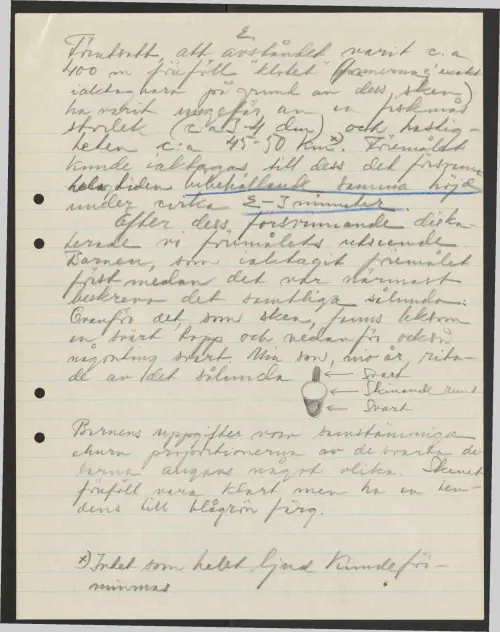 2.
Förutsatt, att avståndet varit c:a
400 m föreföll "klotet" (konturerna exakt
iakttagbara på grund av dess sken)
ha varit ungefär av en fiskmås
storlek (c:a 3-4 dm) och hastig-
heten c:a 45-50 km. x) Föremålet
kunde iakttagas till dess det försvann
hela tiden bibehållande samma höjd
under cirka 2-3 minuter.
Efter dess försvinnande disku-
terade vi föremålets utseende.
Barnen, som iakttagit föremålet
först medan det var närmast
beskrevo det samtliga sålunda:
Ovanför det, som sken, fanns liksom
en svart topp och nedanför också
någonting svart. Min son, nio år, rita-
de av det sålunda
Svart
Skinande runt
Svart
Barnens uppgifter voro samstämmiga
ehuru proportionerna av de svarta de-
larna angavs något olika. Skenet
föreföll vara klart men ha en ten-
dens till blågrön färg.
x) Intet som helst ljud kunde för-
nimmas